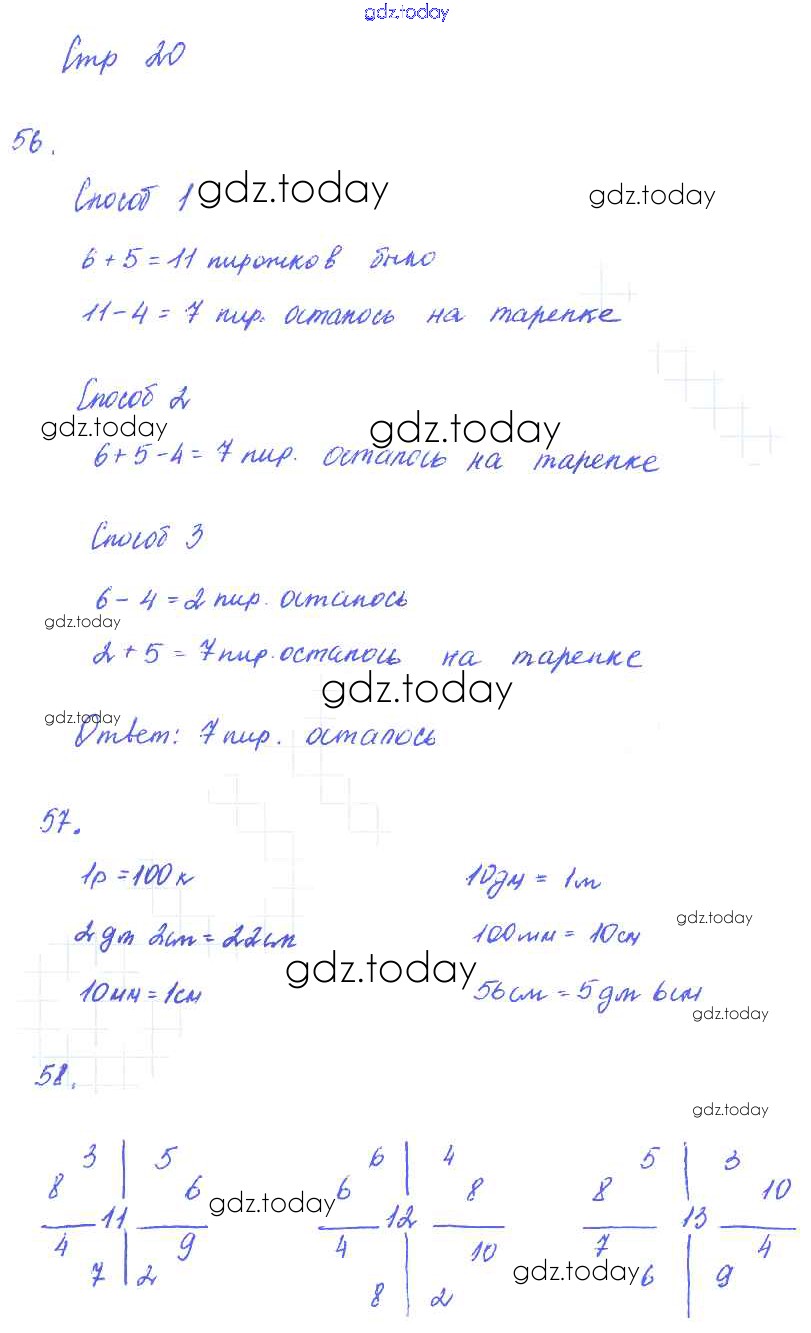 gdz.today
Стр 20
56.
Способ 1 gdz.today gdz.today
6 + 5 = 11 пирожков было
11 - 4 = 7 пир. осталось на тарелке
Способ 2
gdz.today gdz.today
6 + 5 - 4 = 7 пир. осталось на тарелке
Способ 3
6 - 4 = 2 пир. осталось
gdz.today
2 + 5 = 7 пир. осталось на тарелке
gdz.today
gdz.today
Ответ: 7 пир. осталось
57.
1р = 100к 10дм = 1м
gdz.today
2дм 2см = 22см 100мм = 10см
gdz.today
10мм = 1см 56см = 5дм 6см
gdz.today
58.
gdz.today
3 5 6 4 5 3
8 6 6 8 8 10
gdz.today
11 12 13
4 9 4 10 7 4
gdz.today
7 2 8 2 6 9